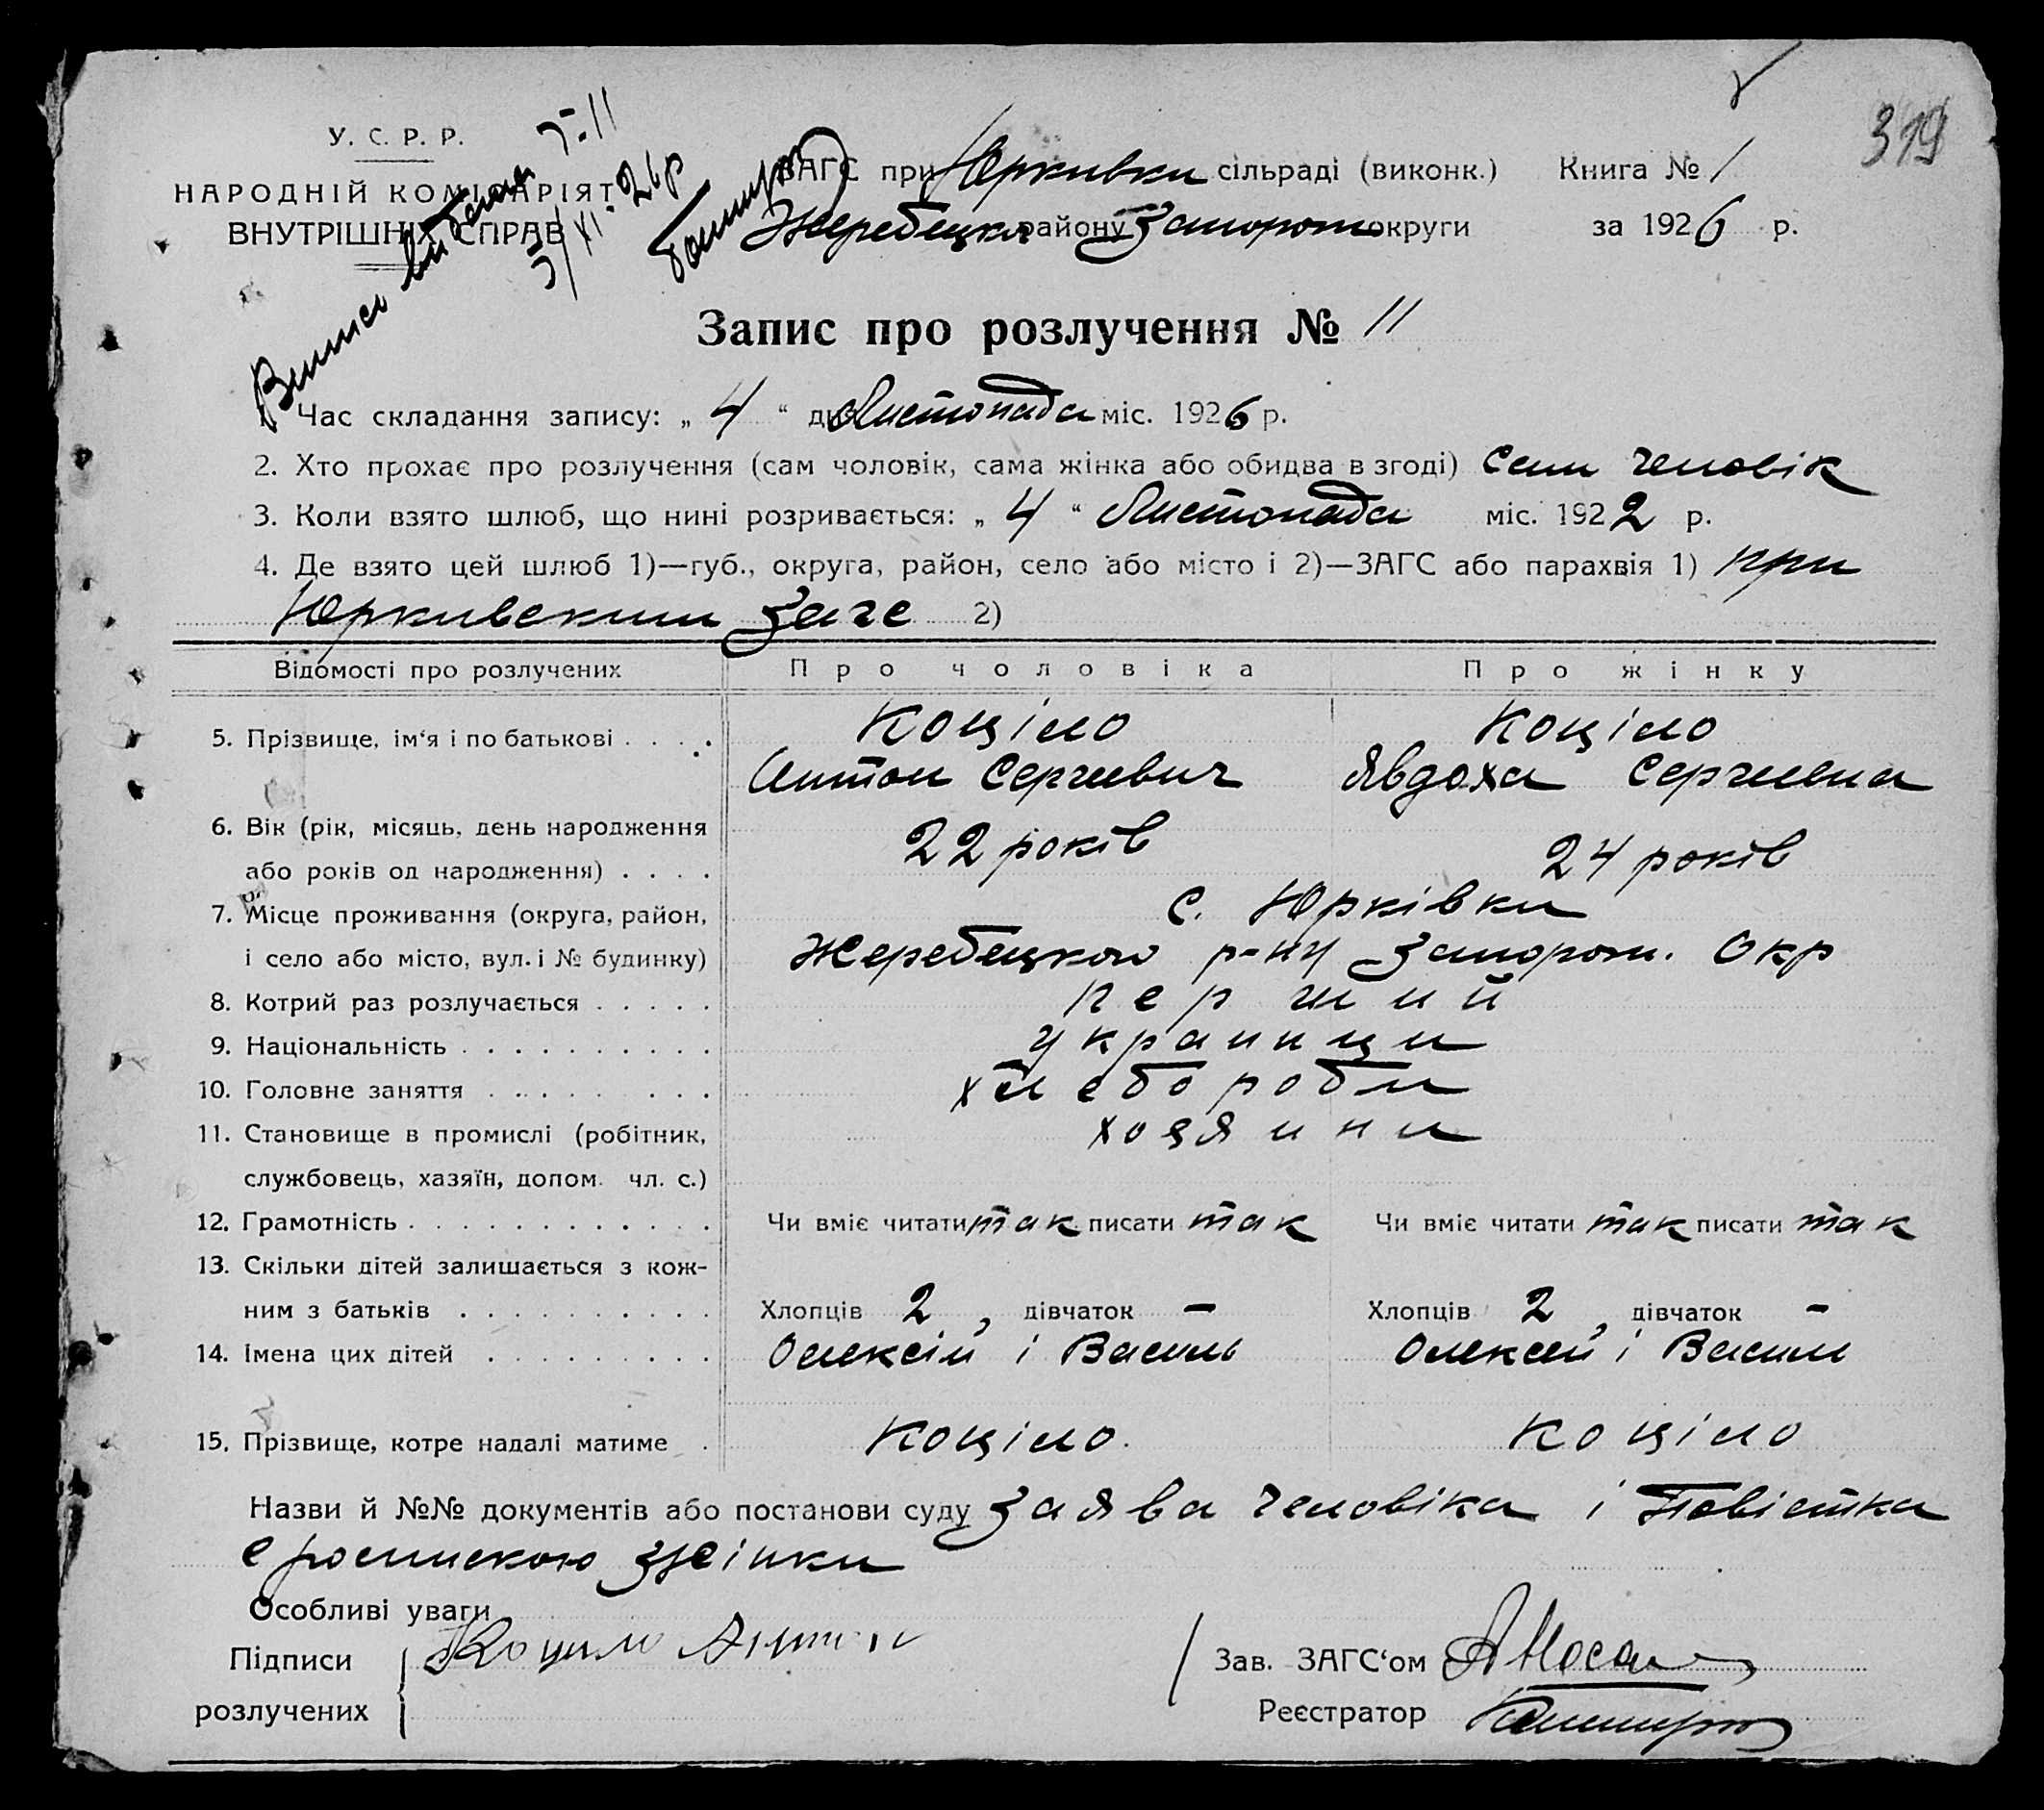 319
У. С. Р. Р.
НАРОДНІЙ КОМІСАРІЯТ
ВНУТРІШНІХ СПРАВ
Випис видана
5/XI. 26 р
ЗАГС при Юркивки сільраді (виконк.) Книга № 1
Жеребецка району Запорож округи за 1926 р.
Запис про розлучення № 11
1. Час складання запису: „ 4 “ дня Листопада міс. 1926 р.
2. Хто прохає про розлучення (сам чоловік, сама жінка або обидва в згоді) Сам человік
3. Коли взято шлюб, що нині розривається: „ 4 “ Листопада міс. 1922 р.
4. Де взято цей шлюб 1)—губ., округа, район, село або місто і 2)—ЗАГС або парахвія 1) при
Юркивским Загс 2)
Відомості про розлучених Про чоловіка Про жінку
5. Прізвище, ім‘я і по батькові . . . . Коціло Коціло
Антон Сергиевич Явдоха Сергиевна
6. Вік (рік, місяць, день народження
або років од народження) . . . . 22 років 24 років
7. Місце проживання (округа, район, с. Юрківки
і село або місто, вул. і № будинку) Жеребецкого р-ну Запорож. Окр
8. Котрий раз розлучається . . . . . перший
9. Національність . . . . . . . . . . украинци
10. Головне заняття . . . . . . . . . хлебороби
11. Становище в промислі (робітник, хозяини
службовець, хазяїн, допом. чл. с.)
12. Грамотність . . . . . . . . . . . . . Чи вміє читати так писати так Чи вміє читати так писати так
13. Скільки дітей залишається з кож-
ним з батьків . . . . . . . . . . Хлопців 2, дівчаток — Хлопців 2, дівчаток —
14. Імена цих дітей . . . . . . . . . Олексій і Василь Олексей і Васили
15. Прізвище, котре надалі матиме . Коціло. Коціло
Назви й №№ документів або постанови суду Заява человіка і Повістка
с роспискою жінки
Особливі уваги
Підписи Коцило Антон
розлучених
Зав. ЗАГС‘ом
Реєстратор